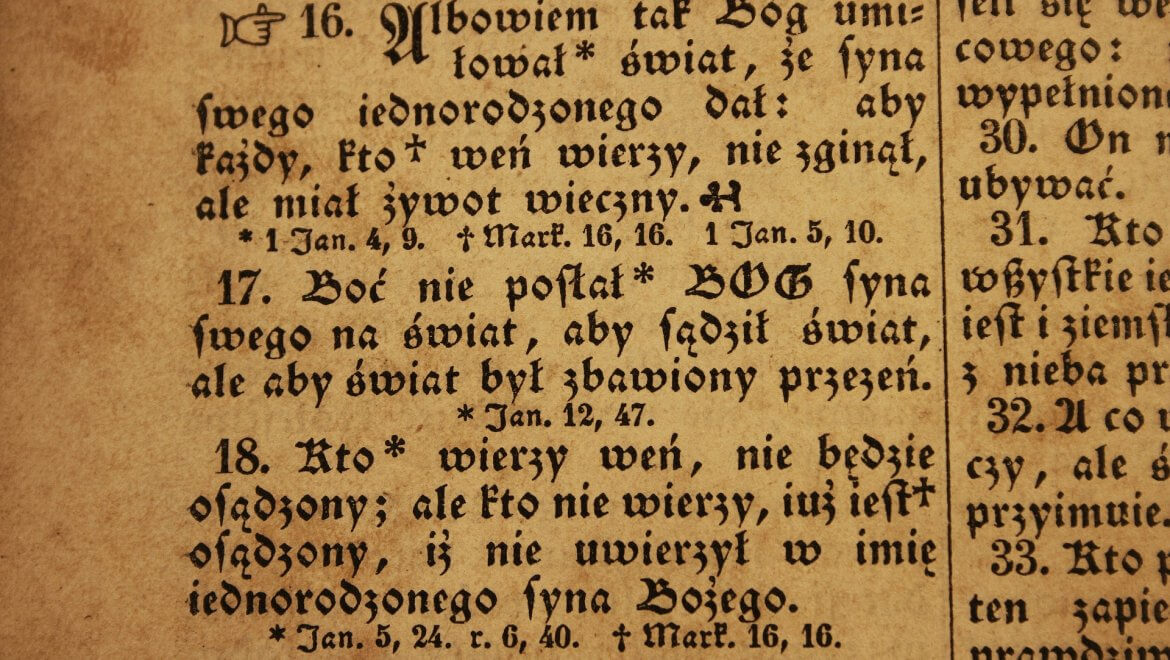 ☞ 16. Albowiem tak Bog umi⸗
łował* świat, że ſyna
ſwego iednorodzonego dał: aby
każdy, kto† weń wierzy, nie zginął,
ale miał żywot wieczny.
* 1 Jan. 4, 9. † Mark. 16, 16. 1 Jan. 5, 10.
17. Boć nie poſłał* BOG ſyna
ſwego na świat, aby ſądził świat,
ale aby świat był zbawiony przezeń.
* Jan. 12, 47.
18. Kto* wierzy weń, nie będzie
oſądzony; ale kto nie wierzy, iuż ieſt†
oſądzony, iż nie uwierzył w imię
iednorodzonego ſyna Bożego.
* Jan. 5, 24. r. 6, 40. † Mark. 16, 16.
się
cowego:
wypełnion
30. On
ubywać.
31. Kto
wßyſtkie ie
ieſt i ziemſ
z nieba pr
32. A co
czy, ale
przyimuie
33. Kto
ten zapie